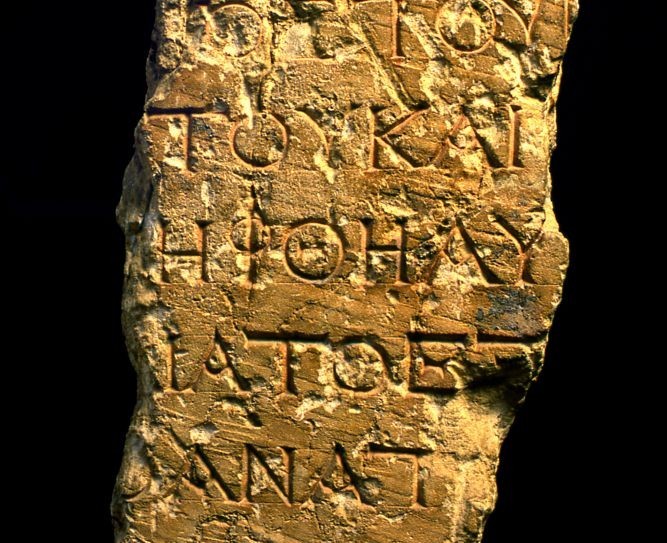 ΤΟΥ
ΤΟΥΚΑΙ
ΗΡΘΗΛΥ
ΙΑΤΟΕΤ
ΑΝΑΤ